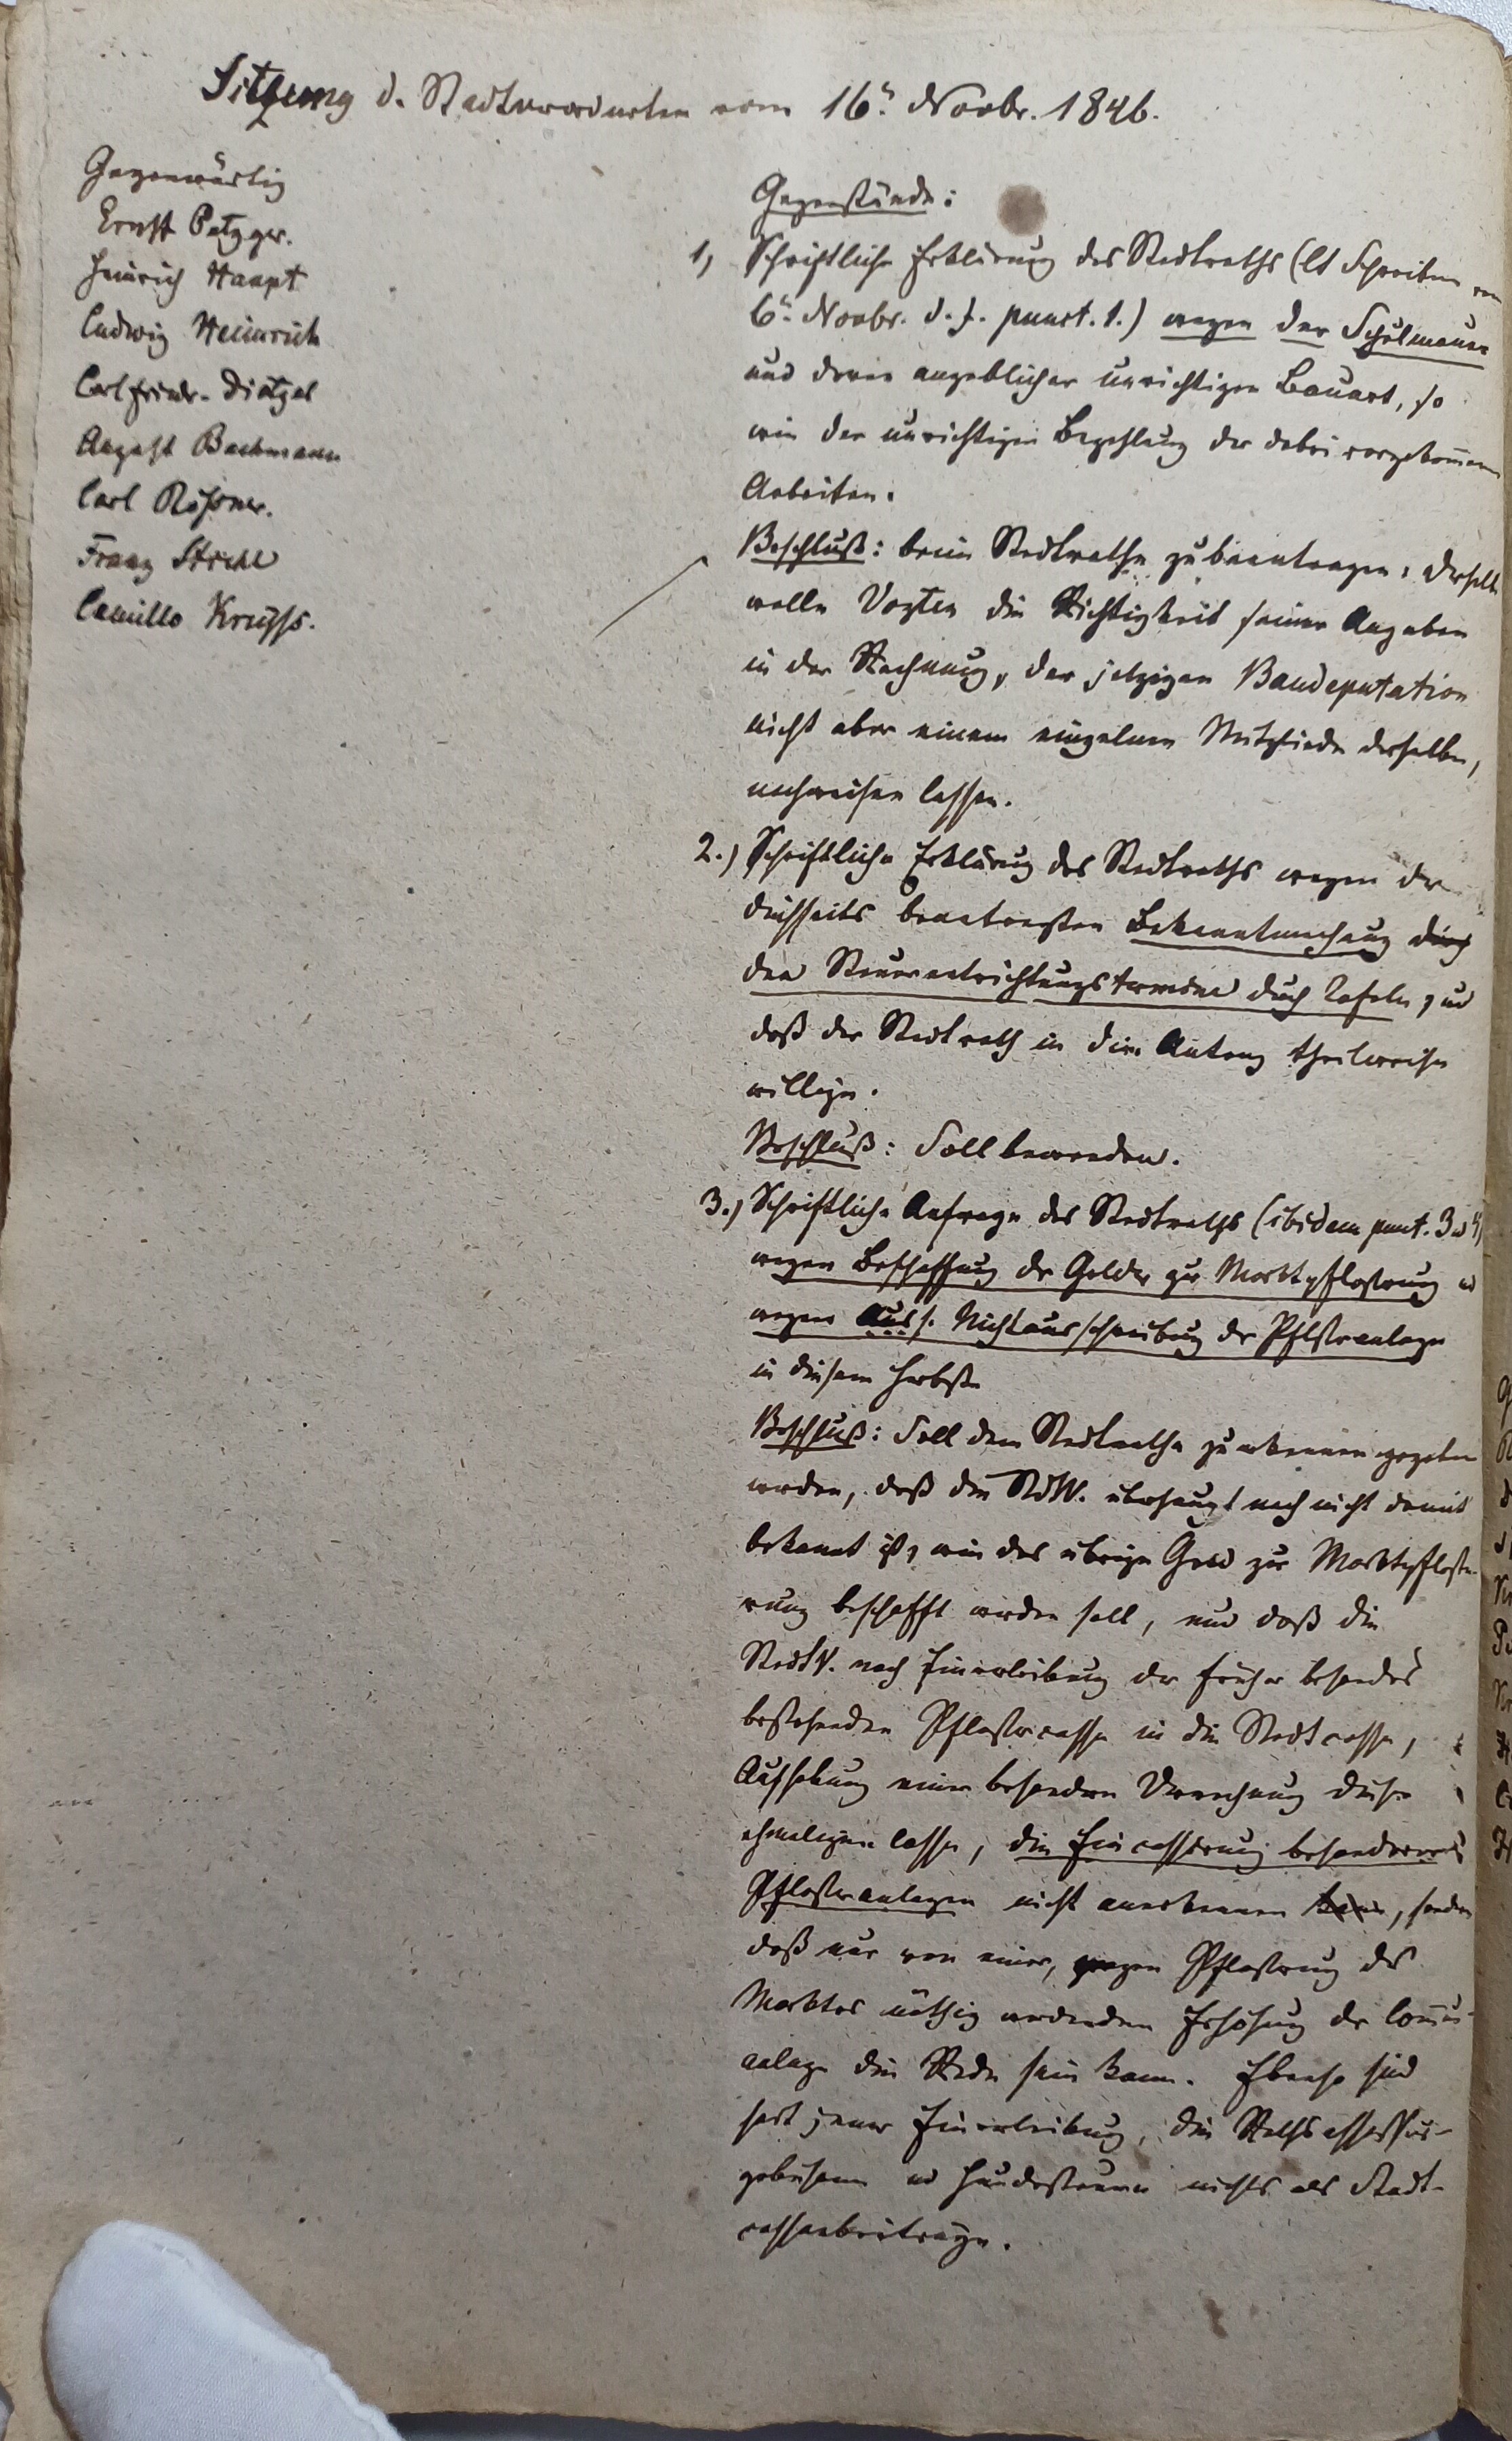 Sitzung d. Stadtverordneten vom 16n. Novbr. 1846.
Gegenwärtig
Ernst Petzger.
Heinrich Haupt
Ludwig Heinrich
Carl Friedr. Dietzel
August Bachmann
Carl Rößner.
Franz Strehl
Camillo Kreyss.
Gegenstände:
1, Schriftliche Erklärung des Stadtraths (lt Schreiben vom
6n. Novbr. d. J. punct. 1.) wegen der Schulmauer
und deren angeblicher unrichtigen Bauart, so
wie der unrichtigen Bezahlung der dabei vorgekom̄enen
Arbeiten.
Beschluß: beim Stadtrathe zu beantragen: derselbe
wolle Vogten die Richtigkeit seiner Angaben
in der Rechnung, der jetzigen Baudeputation
nicht aber einem einzelnen Mitgliede derselben,
nachweisen lassen.
2.) Schriftliche Erklärung des Stadtraths wegen der
diesseits beantragten Bekanntmachung durch
den Steuerentrichtungstermine durch Tafeln, und
daß der Stadtrath in dim Antrag theilweise
willige.
Beschluß: Soll bewenden.
3.) Schriftliche Anfrage des Stadtraths (ibidem punct. 3 u 4)
wegen Beschaffung der Gelder zur Marktpflastrung u
wegen Aus s. Nichtausschreibung der Pflstranlage
in diesem Herbste
Beschluß: Soll dem Stadtrathe zu erkennen gegeben
werden, daß die StdV. überhaupt noch nicht damit
bekannt ist, wie das übrige Geld zur Marktpflaste-
rung beschafft werden soll, und daß die
StadtV. nach Einverleibung der früher besonders
bestehenden Pflastercasse in die Stadtcasse,
Aufhebung einer besondern Verrechnung dieser
ehmaligen Casse, die Einkassirung besonderer
Pflastranlagen nicht anerkennen kann, sondern
daß nur von einer, wegen Pflastrung des
Marktes nöthig werdenden Erhöhung der Com̄un-
anlage die Rede sein kann. Ebenso sind
seit jener Einverleibung, die
gebühren u Hundesteuern nichts als Stadt-
cassenbeiträge.